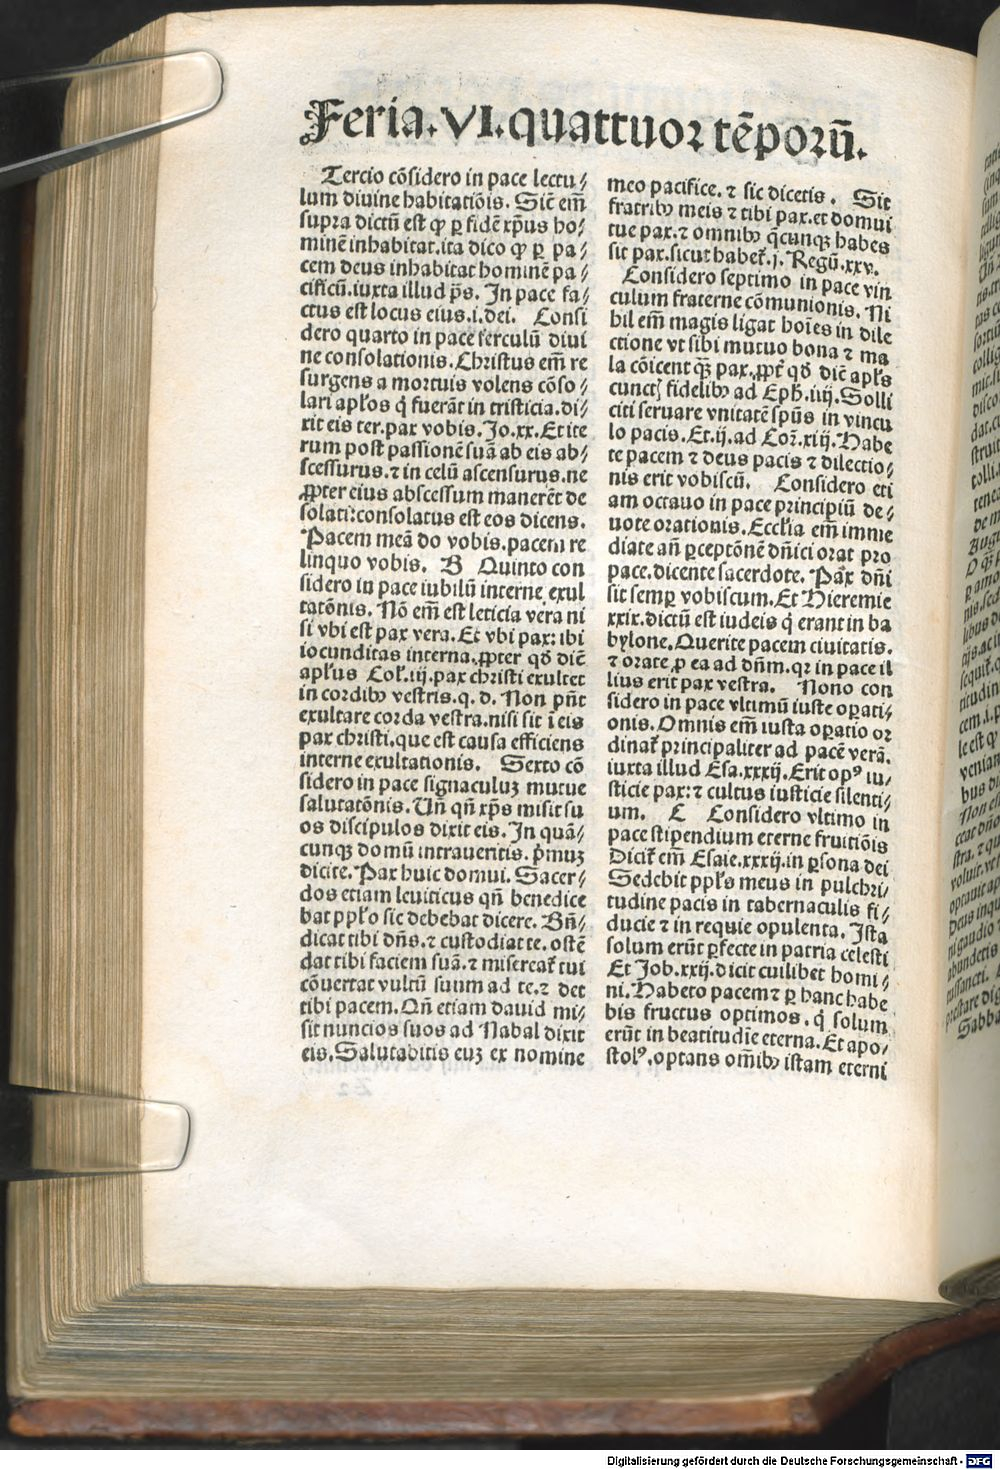 Feria.VI.quattuor tēporū.
Tercio cōsidero in pace lectu⸗
lum diuine habitatiōis. Sic̄ em̄
supra dictū est ꝙ ꝑ fidē xp̄us ho⸗
minē inhabitat.ita dico ꝙ ꝑ pa⸗
cem deus inhabitat hominē pa⸗
cificū.iuxta illud p̄s. In pace fa⸗
ctus est locus eius.i.dei. Consi
dero quarto in pace ferculū diui
ne consolationis. Christus em̄ re
surgens a mortuis volens cōso⸗
lari apl̓os q̇ fuerāt in tristicia.di⸗
xit eis ter.pax vobis. Jo.xx. Et ite
rum post passionē suā ab eis ab⸗
scessurus.⁊ in celū ascensurus.ne
ꝓpter eius abscessum manerēt de
solati:consolatus est eos dicens.
Pacem meā do vobis.pacem re
linquo vobis. B Quinto con
sidero in pace iubilū interne exul
tatōnis. Nō em̄ est leticia vera ni
si vbi est pax vera. Et vbi pax: ibi
iocunditas interna. ꝓpter qd̓ dic̄
apl̓us Col̓.iij.pax christi exultet
in cordibꝫ vestris.q.d. Non pn̄t
exultare corda vestra.nisi sit ī eis
pax christi.que est causa efficiens
interne exultationis. Sexto cō
sidero in pace signaculuꝫ mutue
salutatōnis. Un̄ qn̄ xp̄s misit su
os discipulos dixit eis. In quā⸗
cunqꝫ domū intraueritis. p̓muꝫ
dicite. Pax huic domui. Sacer⸗
dos etiam leuiticus qn̄ benedice
bat ppl̓o sic debebat dicere. Bn̄⸗
dicat tibi dn̄s.⁊ custodiat te.ostē
dat tibi faciem suā.⁊ misereat̓ tui
cōuertat vultū suum ad te.⁊ det
tibi pacem. Qn̄ etiam dauid mi⸗
sit nuncios suos ad Nabal dixit
eis. Salutabitis euꝫ ex nomine
meo pacifice.⁊ sic dicetis. Sit
fratribꝫ meis ⁊ tibi pax.et domui
tue pax.⁊ omnibꝫ q̄cunqꝫ habes
sit pax.sicut habet̓.j. Regū.xxv.
Considero septimo in pace vin
culum fraterne cōmunionis. Ni
hil em̄ magis ligat hoīes in dile
ctione vt sibi mutuo bona ⁊ ma
la cōicent qꝫ pax.ꝓpt̓ qd̓ dic̄ apl̓s
cunctꝭ fidelibꝫ ad Eph̓.iiij. Solli
citi seruare vnitatē spūs in vincu
lo pacis. Et.ij.ad Cor̄.xiij. Habe
te pacem ⁊ deus pacis ⁊ dilectio⸗
nis erit vobiscū. Considero eti
am octauo in pace principiū de⸗
uote orationis. Eccl̓ia em̄ imme
diate an̄ ꝑceptōnē dn̄ici orat pro
pace.dicente sacerdote. Pax dn̄i
sit semꝑ vobiscum. Et Hieremie
xxix.dictū est iudeis q̇ erant in ba
bylone. Querite pacem ciuitatis.
⁊ orate ꝓ ea ad dn̄m.qꝛ in pace il
lius erit pax vestra. Nono con
sidero in pace vltimū iuste oꝑati⸗
onis. Omnis em̄ iusta oꝑatio or
dinat̓ principaliter ad pacē verā.
iuxta illud Esa.xxxij. Erit opꝰ iu⸗
sticie pax:⁊ cultus iusticie silenti⸗
um. C Considero vltimo in
pace stipendium eterne fruitiōis
Dicit̓ em̄ Esaie.xxxij.in ꝑsona dei
Sedebit ppl̓s meus in pulchri⸗
tudine pacis in tabernaculis fi⸗
ducie ⁊ in requie opulenta. Ista
solum erūt ꝑfecte in patria celesti
Et Job.xxij.dicit cuilibet homi⸗
ni. Habeto pacem ⁊ ꝑ hanc habe
bis fructus optimos. q̇ solum
erūt in beatitudīe eterna. Et apo⸗
stolꝰ.optans om̄ibꝫ istam eterni
Digitalisierung gefördert durch die Deutsche Forschungsgemeinschaft - DFG